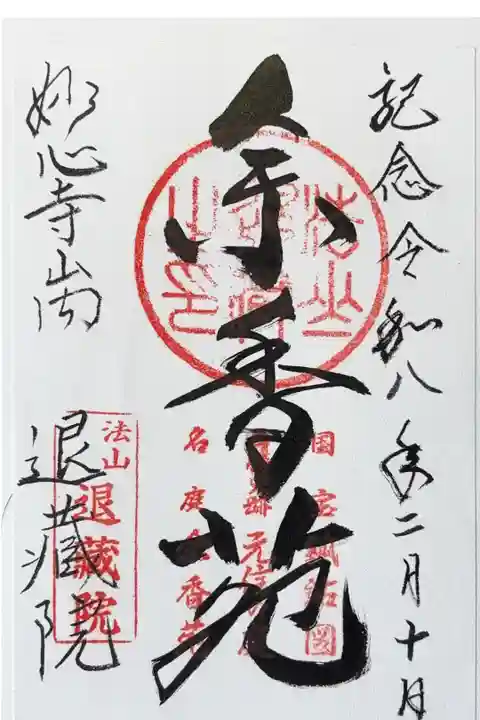 記念 令和八年二月十日
余香苑
国宝瓢鮎図
元信の庭
名庭余香苑
妙心寺山内
退蔵院
法山
退蔵院